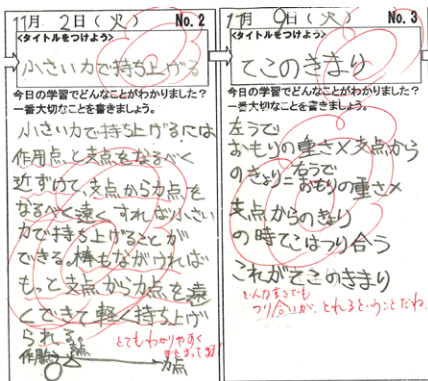 11月 2日(火) No.2
<タイトルをつけよう>
小さい力で持ち上げる
今日の学習でどんなことがわかりましたか?
一番大切なことを書きましょう。
小さい力で持ち上げるには
作用点と支点をなるべく
近ずけて、支点から力点を
なるべく遠くすれば小さい
力で持ち上げることが
できる。棒もながければ
もっと支点から力点を遠
くできて軽く持ち上げ
られる。
とてもわかりやすく
作用点 支点 力点
11月 9日(火) No.3
<タイトルをつけよう>
てこのきまり
今日の学習でどんなことがわかりましたか?
一番大切なことを書きましょう。
左うで
おもりの重さ×支点から
のきょり=右うで
おもりの重さ×
支点からのきょり
の時てこはつり合う
これがてこのきまり
どんな重さでも
つり合いが、とれるということだね。